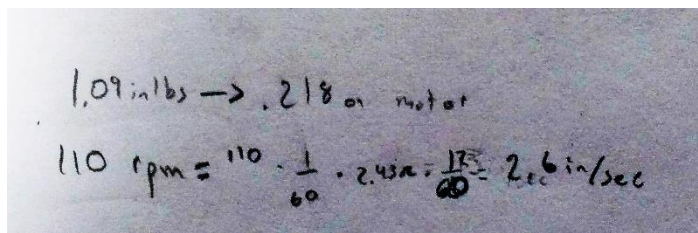 1.09 inlbs → .218 on motor
110 rpm = 110 · 1/60 · 2.45π = /60 = 2. 6 in/sec